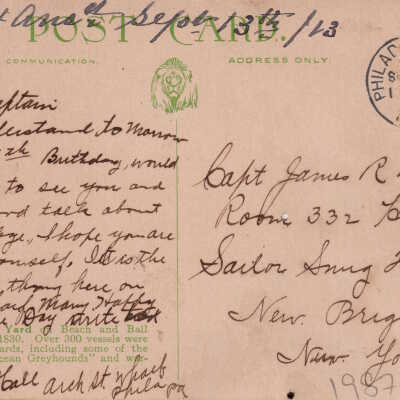 Sept 13th/13
POST CARD.
COMMUNICATION.
ADDRESS ONLY
PHILAD
ptain
derstand, to Morrow
th Birthday, would
to see you and
rd talk about
ge, I hope you are
mself, It is the
thing here on
Many Happy
Day write
Yard Beach and Ball
1830. Over 300 vessels were
ards, including some of the
cean Greyhounds" and
Hall Arch St wharf
Phila Pa
Capt James R
Room 332
Sailor Snug H
New Brig
New Yo
1987